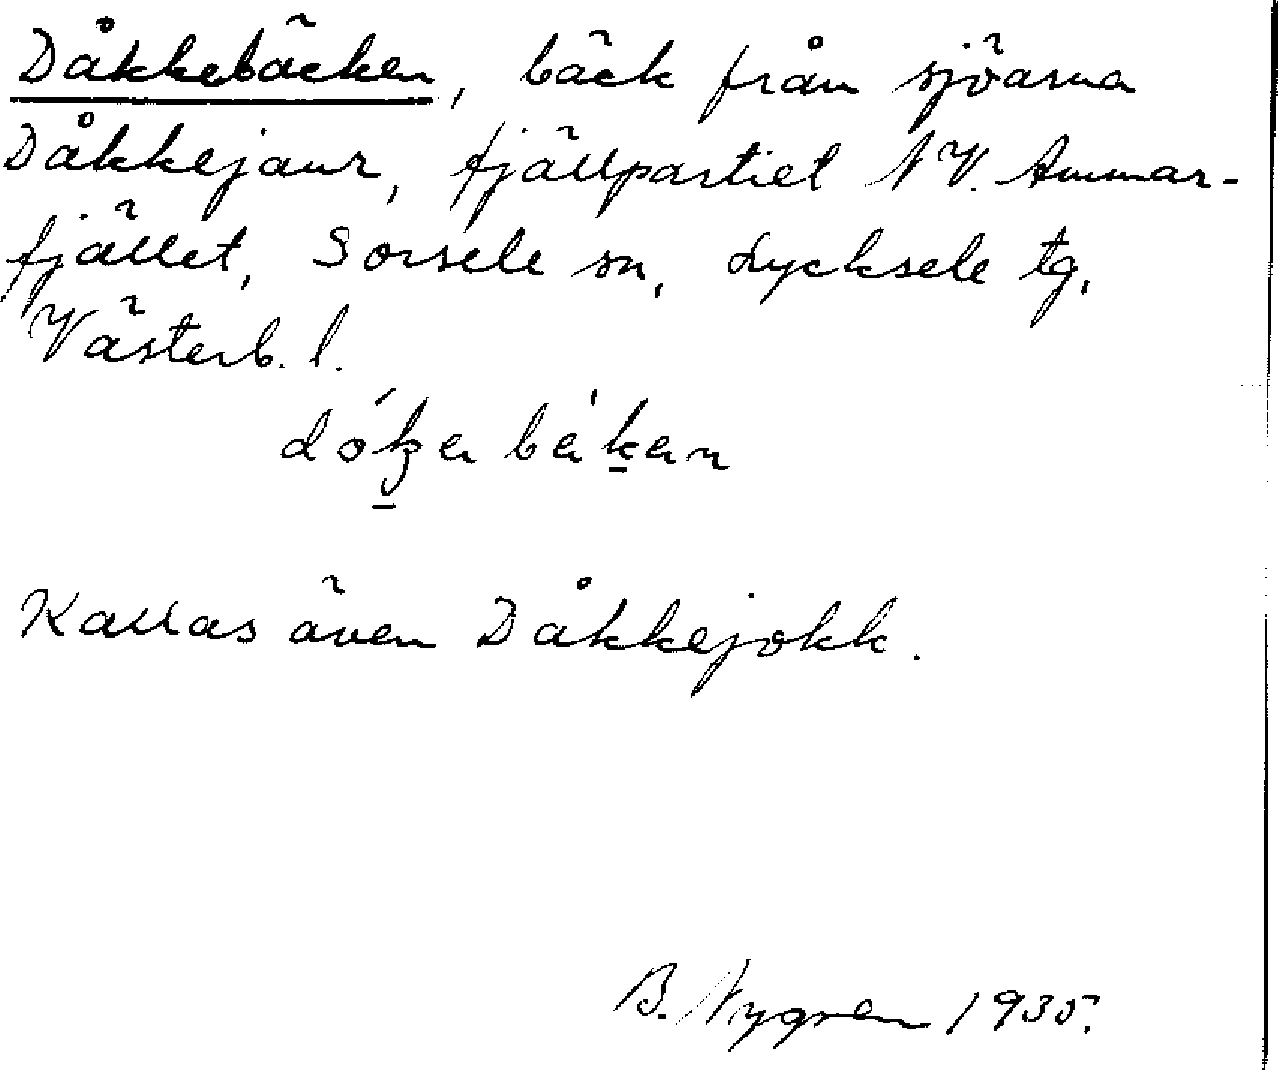 Dåkkebäcken, bäck från sjöarna
Dåkkejaur, fjällpartiet NV. Ammar-
fjället, Sorsele sn, Lycksele tg,
Västerb. l.
Kallas även Dåkkejokk.
B. Nygren 1935.